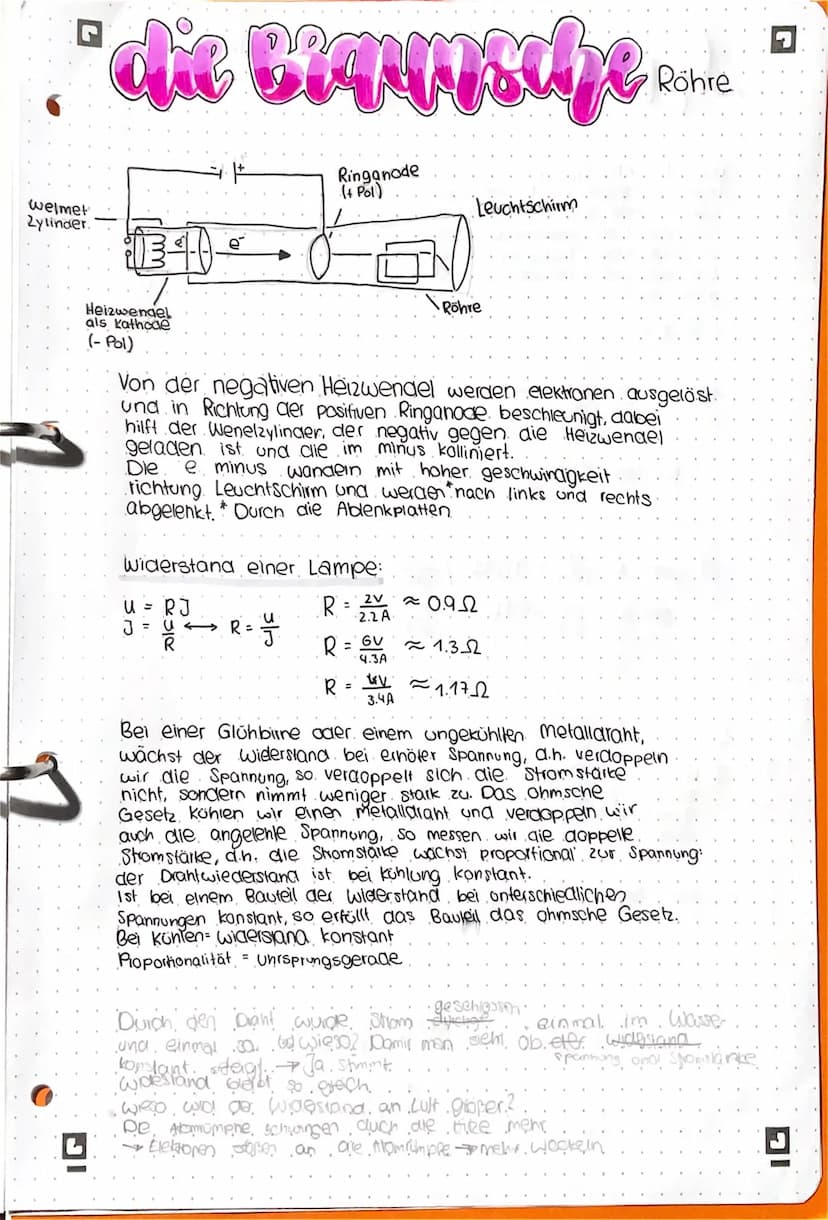 die Braunsche Röhre
Ringanode
(+ Pol)
Leuchtschirm
Welmet
Zylinder
e⁻
e⁻
Röhre
Heizwendel
als Kathode
(- Pol)
Von der negativen Heizwendel werden elektronen ausgelöst
und in Richtung der positiven Ringanode beschleunigt, dabei
hilft der Wenelzylinder, der negativ gegen die Heizwendel
geladen ist und die im minus kolliniert.
Die e minus wandeln mit hoher geschwindigkeit
richtung Leuchtschirm und werden* nach links und rechts
abgelenkt. * Durch die Ablenkplatten
Widerstand einer Lampe:
U = RJ
J = U/R ⟷ R = U/J
R = 2V/2.2A ≈ 0.9Ω
R = 6V/4.3A ≈ 1.3Ω
R = V/3.4A ≈ 1.17Ω
Bei einer Glühbirne oder einem ungekühlten Metalldraht,
wächst der Widerstand bei erhöter Spannung, d.h. verdoppeln
wir die Spannung, so verdoppelt sich die Stromstärke
nicht, sondern nimmt weniger stark zu. Das ohmsche
Gesetz kühlen wir einen Metalldraht und verdoppeln wir
auch die angelehle Spannung, so messen wir die doppelle
Stromstärke, d.h. die Stromstärke wächst proportional zur Spannung:
der Drahtwiederstand ist bei kühlung konstant.
Ist bei einem Bauteil der Widerstand bei unterschiedlichen
Spannungen konstant, so erfüllt das Bauteil das ohmsche Gesetz.
Bei kühlen = widerstand konstant
Proportionalität = Uhrsprungsgerade
Durch den Draht wurde Strom geschlossen, einmal im Wasser
und einmal so. Wieso? Damit man sieht ob der widerstand
Spannung und Stromstärke
konstant steigt. → Ja stimmt.
Widestand bleibt so gleich
wird der Widestand an Luft größer?
Die Atomrümpfe schwingen duch die Hize mehr
→ Elektronen stoßen an die Atomrümpfe → mehr Wackeln